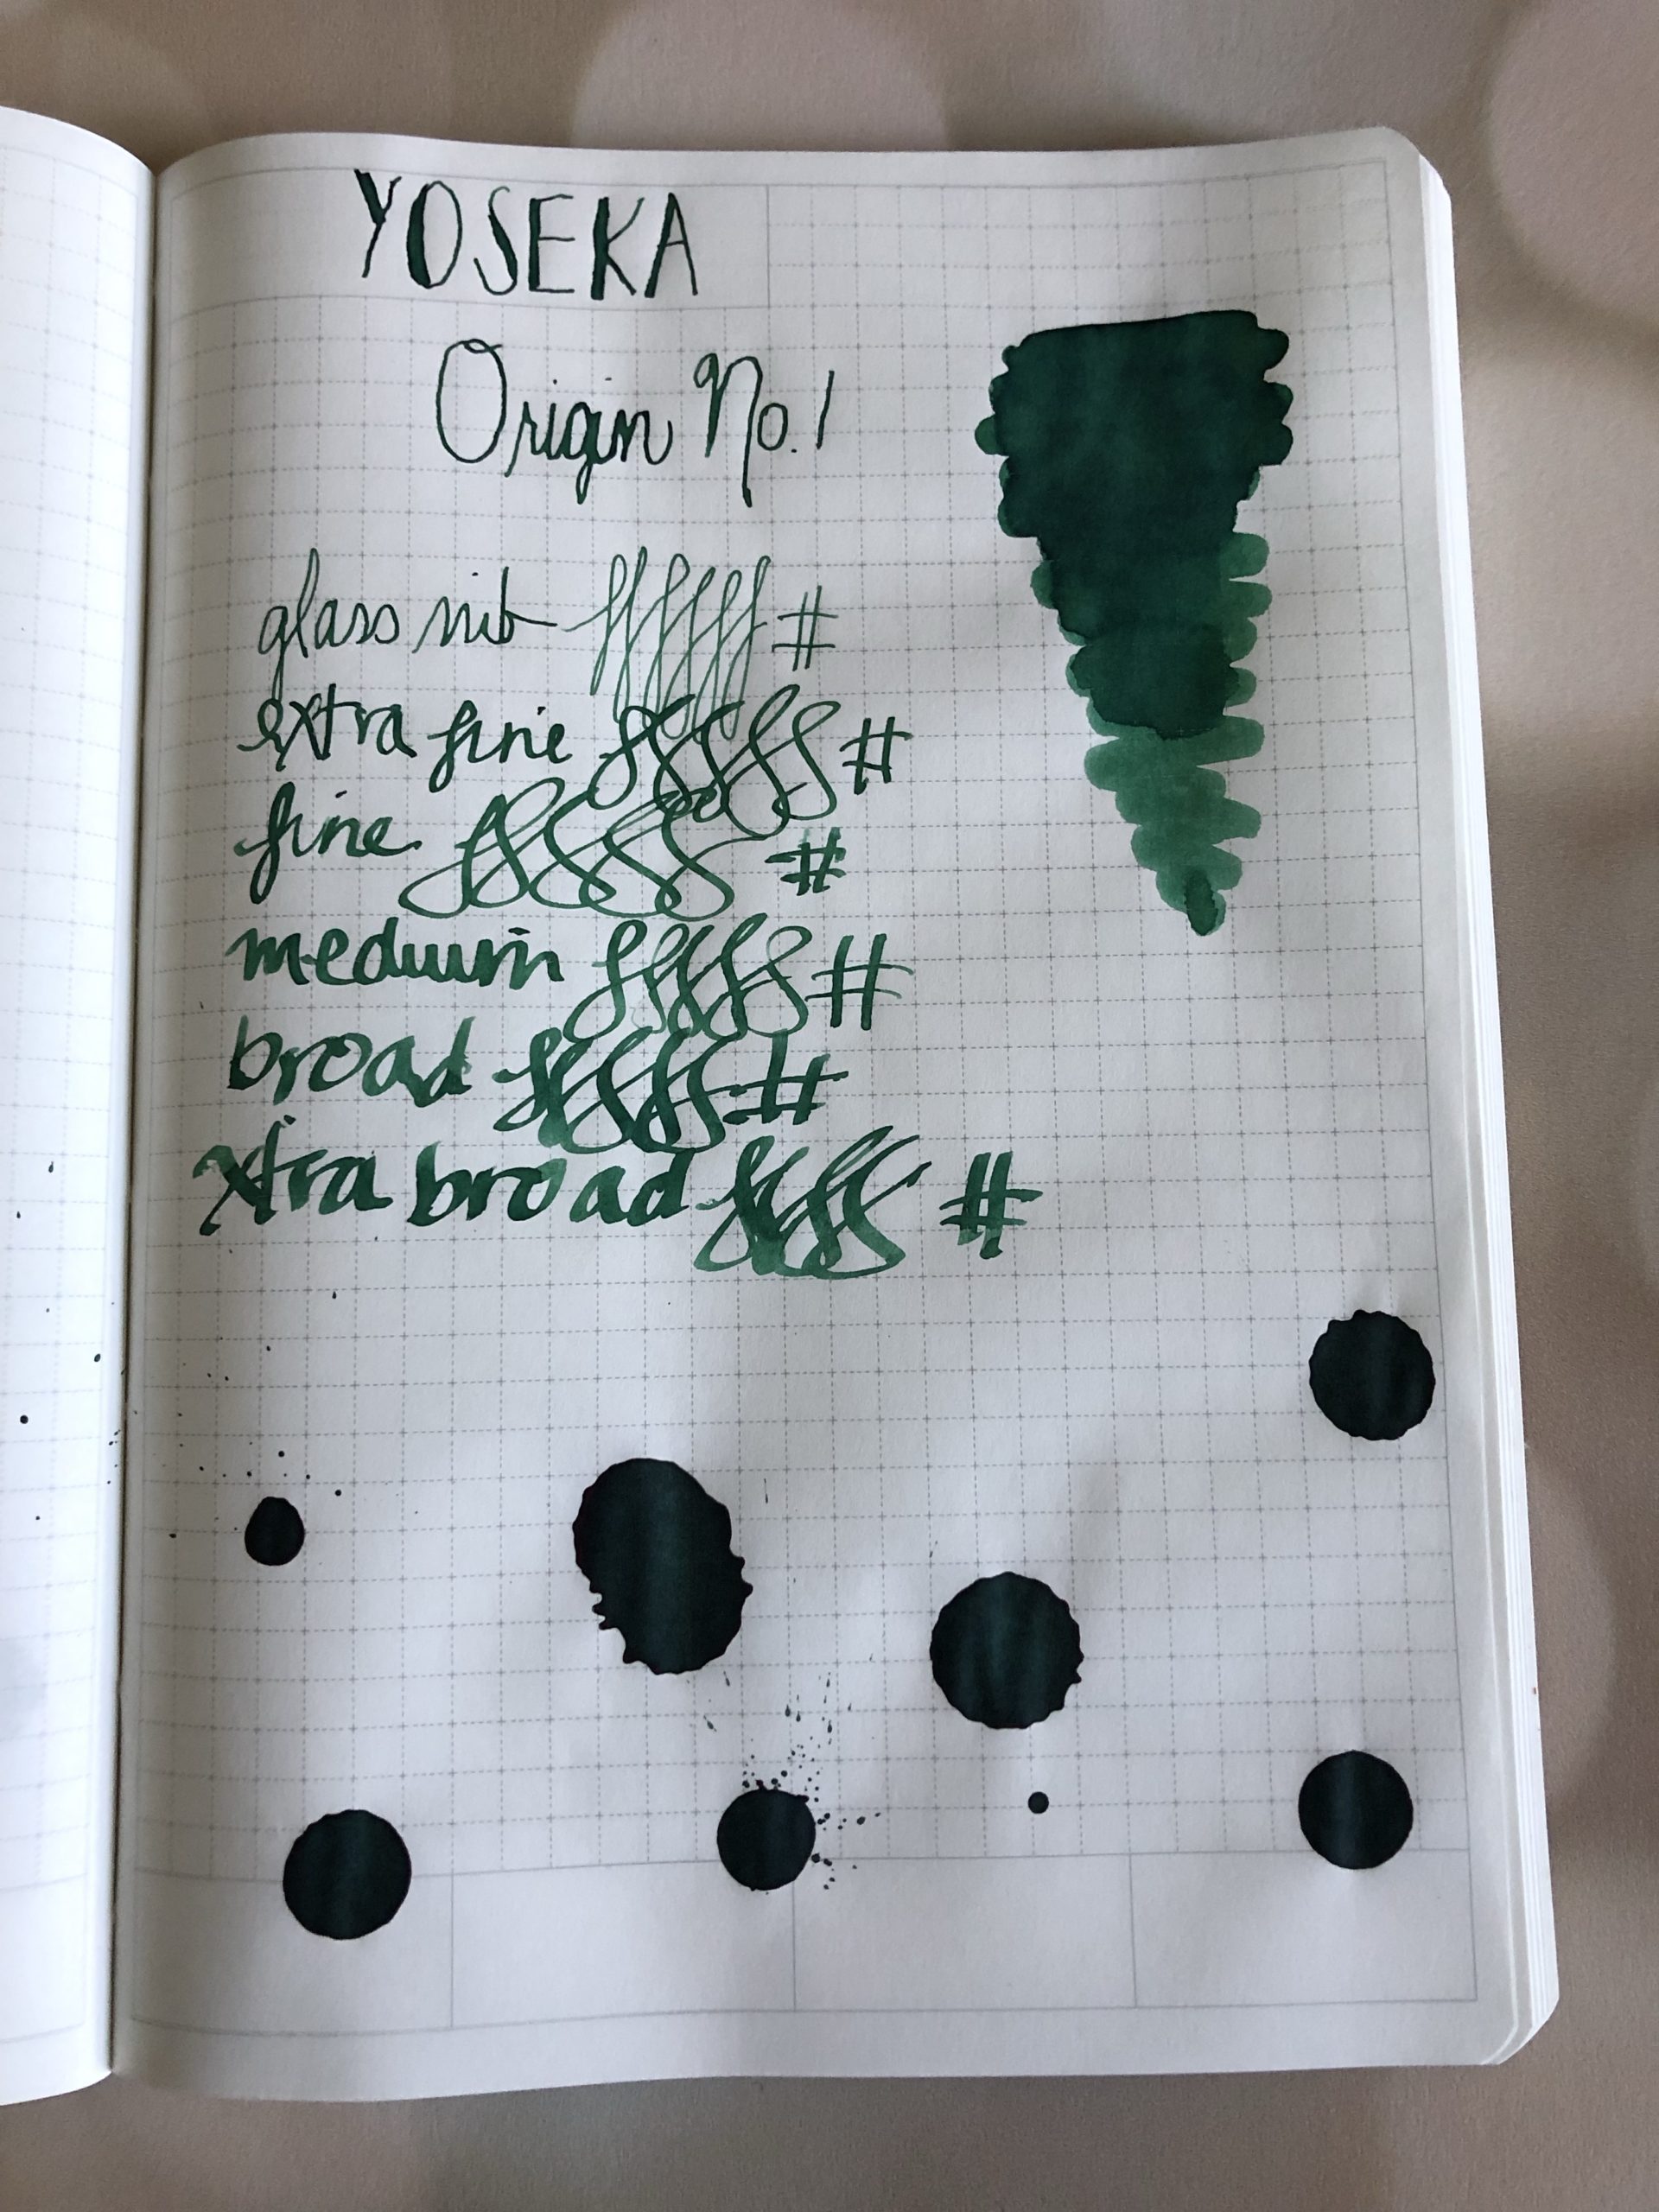 YOSEKA
Origin No. 1
glass nib #
extra fine #
fine #
medium #
broad #
xtra broad #